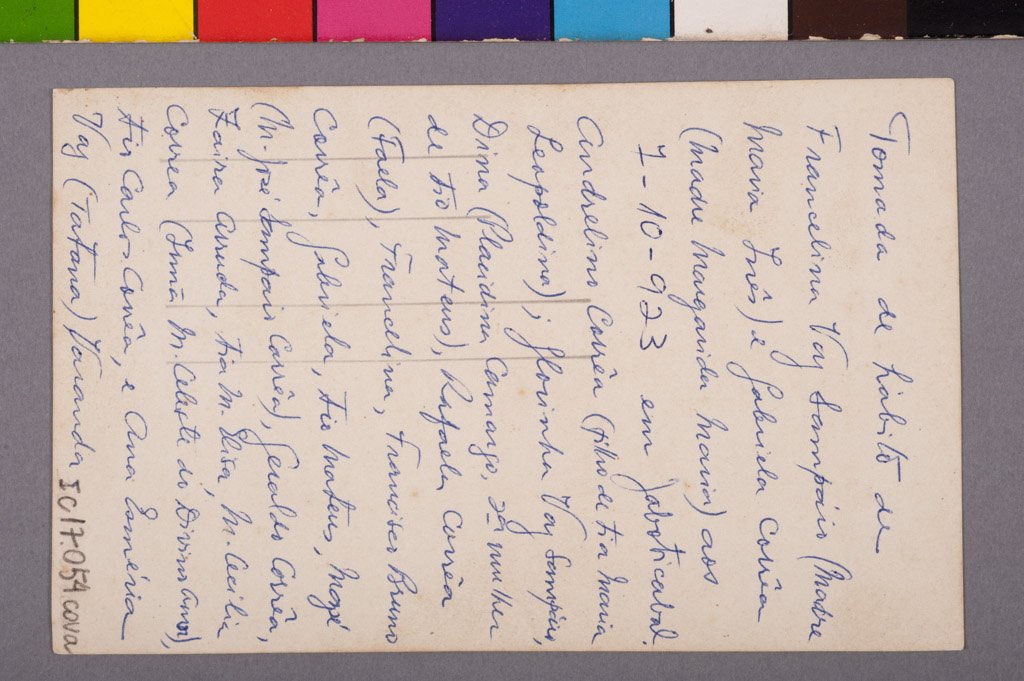 Tomada de hábito de
Francelina Vaz Sampaio (Madre
Maria Inês) e Gabriela Corrêa
(Madre Margarida Maria) aos
7-10-923 em Jaboticabal.
Andrelino Corrêa (filho de tia Maria
Leopoldina); Florinha Vaz Sampaio,
Dina (Plaudina Camargo, 2ª mulher
de tio Mateus), Rafaela Corrêa
(Faela), Francelina, Francisco Bruno
Corrêa, Gabriela, tio Mateus, Mazé
(M. José Sampaio Corrêa), Geraldo Corrêa,
Zaira Arruda, tia M. Elisa, M. Cecilia
Corrêa (Irmã M. Celeste do Divino Amor),
tio Carlos Corrêa, e Ana Esméria
Vaz (Tatana) Varanda
IC17.054cova